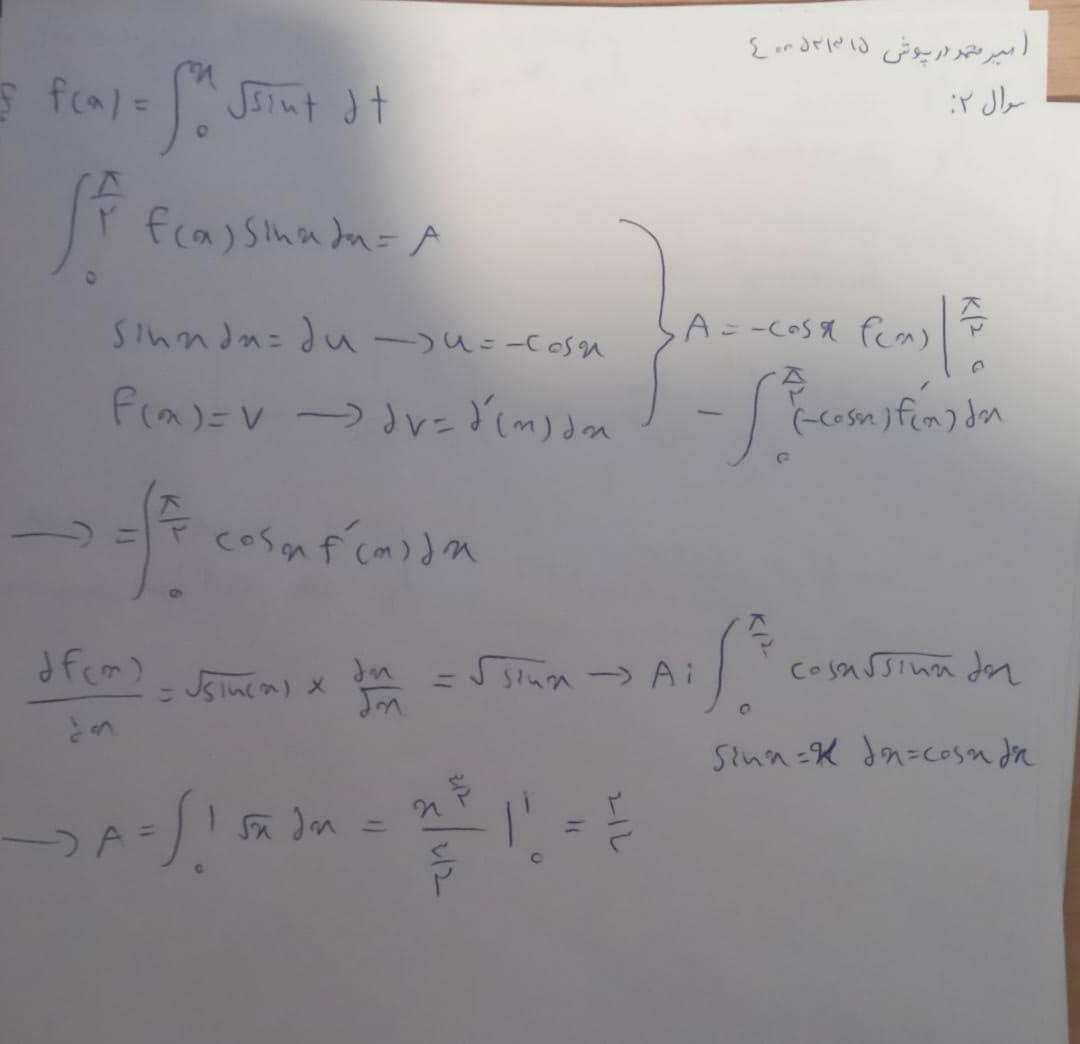 امیرمحمد درپوش ۴۰۰۵۲۱۳۱۵
سوال ۲:
f(x) = ∫₀ˣ √sint dt
∫₀^(π/۲) f(x) sinx dx = A
sinx dx = du → u = -cosx
f(x) = v → dv = f'(x) dx
} A = -cosx f(x) |₀^(π/۲)
- ∫₀^(π/۲) (-cosx) f'(x) dx
→ = ∫₀^(π/۲) cosx f'(x) dx
df(x)/dx = √sin(x) × dx/dx = √sinx → A: ∫₀^(π/۲) cosx √sinx dx
sinx = x dx = cosx dx
→ A = ∫₀¹ √x dx = x^(۳/۲)/(۳/۲) |₀¹ = ۲/۳